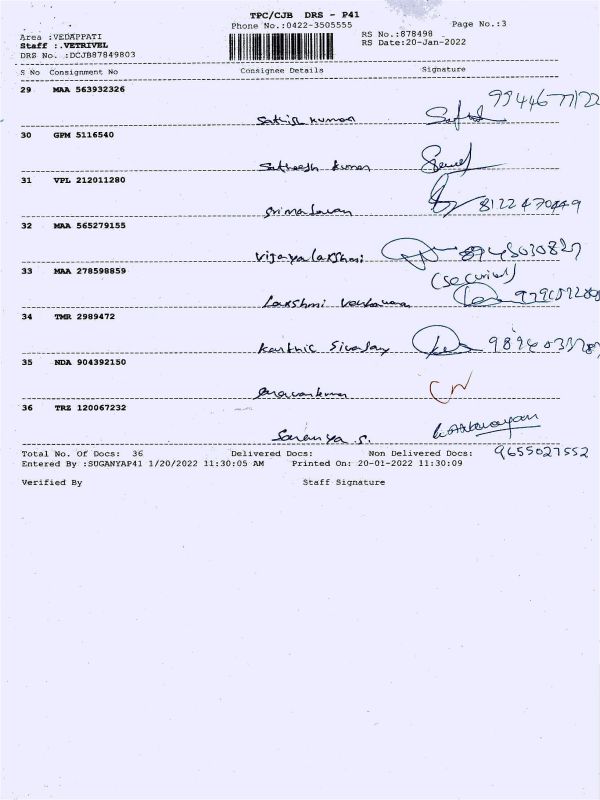 TPC/CJB DRS - P41
Phone No.:0422-3505555 Page No.:3
Area :VEDAPPATI RS No.:878498
Staff :.VETRIVEL RS Date:20-Jan-2022
DRS No. :DCJB87849803
S No Consignment No Consignee Details Signature
29 MAA 563932326
Sathish kumar
30 GPM 5116540
Satheesh kumar
31 VPL 212011280
8122470449
32 MAA 565279155
Vijayalakshmi
33 MAA 278598859
Lakshmi
34 TMR 2989472
Karthic
35 NDA 904392150
36 TRZ 120067232
Saranya S.
Total No. Of Docs: 36 Delivered Docs: Non Delivered Docs: 9655027552
Entered By :SUGANYAP41 1/20/2022 11:30:05 AM Printed On: 20-01-2022 11:30:09
Verified By Staff Signature